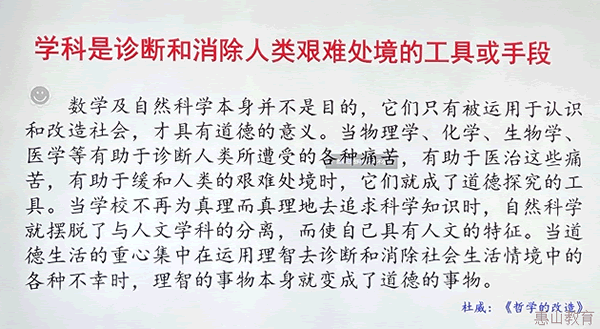 学科是诊断和消除人类艰难处境的工具或手段
数学及自然科学本身并不是目的，它们只有被运用于认识
和改造社会，才具有道德的意义。当物理学、化学、生物学、
医学等有助于诊断人类所遭受的各种痛苦，有助于医治这些痛
苦，有助于缓和人类的艰难处境时，它们就成了道德探究的工
具。当学校不再为真理而真理地去追求科学知识时，自然科学
就摆脱了与人文学科的分离，而使自己具有人文的特征。当道
德生活的重心集中在运用理智去诊断和消除社会生活情境中的
各种不幸时，理智的事物本身就变成了道德的事物。
杜威：《哲学的改造》
惠山教育